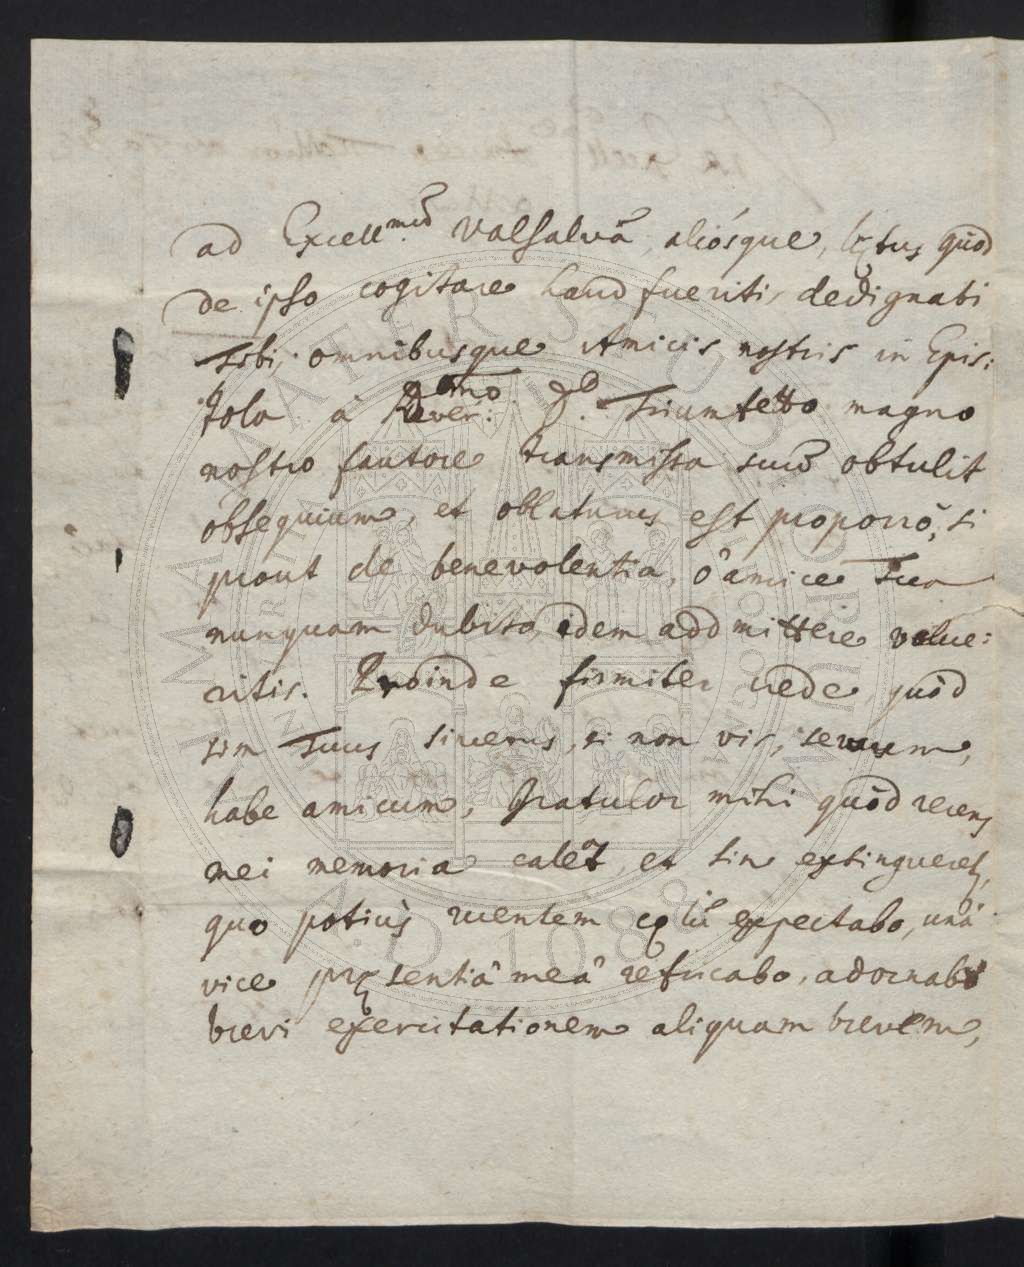 ad Excell.mū Valsalvā, aliósque, lętus quòd
de ipso cogitare haud fueritis dedignati
Tibi, omnibusque Amicis nostris in Epis:
tola à Rever:mo D. Triumfetto magno
nostro fautore transmissa suū obtulit
obsequium, et oblaturus est proporrò, si
prout de benevolentia, ô amice Tua
nunquam dubito, idem addmittere volue:
ritis. Proinde firmiter crede quòd
sim Tuus sincerus, si non vis, servum,
habe amicum, Gratulor mihi quòd recens
mei memoria calet, et sin extingueret,
quo potiùs ruentem expectabo, unâ
vice pręsentiâ meâ refricabo, adornabo
brevi exercitationem aliquam brevem,
IN MATER STUDIORUM
A.D. 1088